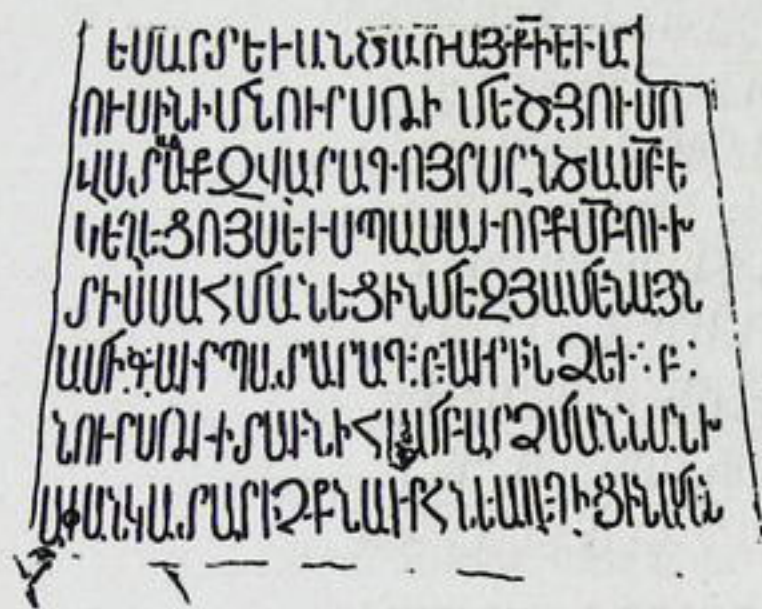 ԵՍԱՐՄԵՒԱՆԾԱՌԱՅՔԻԵՒԱ
ՈՒՍԻՆԻՄՆՈՒՐՍՌԻՄԵԾՅՈՒՍՈ
ՎԱՐԱԳՈՅՐՍԸՆԾԱՄԲԵ
ԿԵՂԵՑՈՅՍԵՒՍՊԱՍԱՒՈՐՔՄԲՈՒԽ
ՏԻՍՍԱՀՄԱՆԵՑԻՆՄԵՋՅԱՄԵՆԱՅՆ
ԱՄԻ:Գ:ԱՒՐՊԱՏԱՐԱԳ:Բ:ԱՒՐԻՆՁԵՒ:Բ:
ՆՈՒՐՍՌԻՒՏԱՒՆԻՀԱՄԲԱՐՁՄԱՆՆԱՆԻ
ԱՓԱՆԿԱՏԱՐԻՉՔՆԱՒՐՀՆԵԱԼԵՂԻՑԻՆԱՄԷՆ